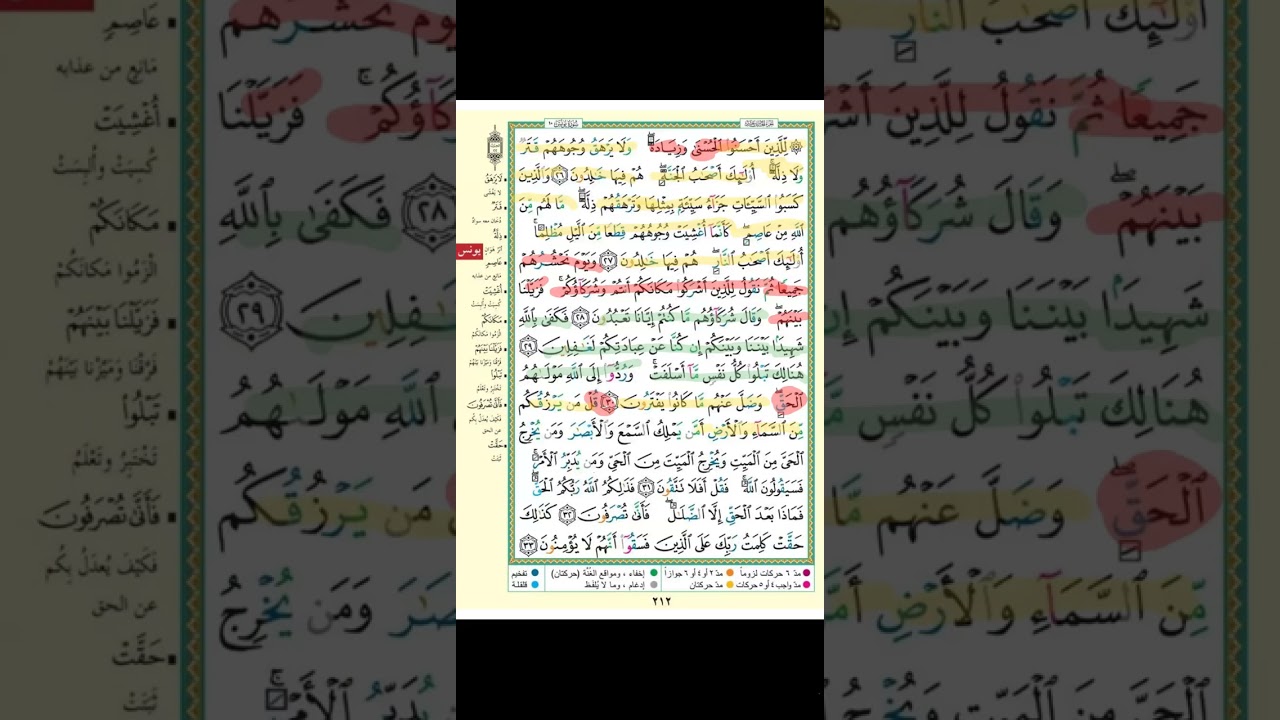 سورة يونس ١٠
لِّلَّذِينَ أَحْسَنُوا۟ ٱلْحُسْنَىٰ وَزِيَادَةٌۖ وَلَا يَرْهَقُ وُجُوهَهُمْ قَتَرٌ
وَلَا ذِلَّةٌۚ أُو۟لَٰٓئِكَ أَصْحَٰبُ ٱلْجَنَّةِۖ هُمْ فِيهَا خَٰلِدُونَ ٢٦ وَٱلَّذِينَ
كَسَبُوا۟ ٱلسَّيِّـَٔاتِ جَزَآءُ سَيِّئَةٍۭ بِمِثْلِهَا وَتَرْهَقُهُمْ ذِلَّةٌۖ مَّا لَهُم مِّنَ
ٱللَّهِ مِنْ عَاصِمٍۖ كَأَنَّمَآ أُغْشِيَتْ وُجُوهُهُمْ قِطَعًا مِّنَ ٱلَّيْلِ مُظْلِمًاۚ
أُو۟لَٰٓئِكَ أَصْحَٰبُ ٱلنَّارِۖ هُمْ فِيهَا خَٰلِدُونَ ٢٧ وَيَوْمَ نَحْشُرُهُمْ
جَمِيعًا ثُمَّ نَقُولُ لِلَّذِينَ أَشْرَكُوا۟ مَكَانَكُمْ أَنتُمْ وَشُرَكَآؤُكُمْۚ فَزَيَّلْنَا
بَيْنَهُمْۖ وَقَالَ شُرَكَآؤُهُم مَّا كُنتُمْ إِيَّانَا تَعْبُدُونَ ٢٨ فَكَفَىٰ بِٱللَّهِ
شَهِيدًۢا بَيْنَنَا وَبَيْنَكُمْ إِن كُنَّا عَنْ عِبَادَتِكُمْ لَغَٰفِلِينَ ٢٩
هُنَالِكَ تَبْلُوا۟ كُلُّ نَفْسٍ مَّآ أَسْلَفَتْۚ وَرُدُّوٓا۟ إِلَى ٱللَّهِ مَوْلَىٰهُمُ
ٱلْحَقِّۖ وَضَلَّ عَنْهُم مَّا كَانُوا۟ يَفْتَرُونَ ٣٠ قُلْ مَن يَرْزُقُكُم
مِّنَ ٱلسَّمَآءِ وَٱلْأَرْضِ أَمَّن يَمْلِكُ ٱلسَّمْعَ وَٱلْأَبْصَٰرَ وَمَن يُخْرِجُ
ٱلْحَىَّ مِنَ ٱلْمَيِّتِ وَيُخْرِجُ ٱلْمَيِّتَ مِنَ ٱلْحَىِّ وَمَن يُدَبِّرُ ٱلْأَمْرَۚ
فَسَيَقُولُونَ ٱللَّهُۚ فَقُلْ أَفَلَا تَتَّقُونَ ٣١ فَذَٰلِكُمُ ٱللَّهُ رَبُّكُمُ ٱلْحَقُّۖ
فَمَاذَا بَعْدَ ٱلْحَقِّ إِلَّا ٱلضَّلَٰلُۖ فَأَنَّىٰ تُصْرَفُونَ ٣٢ كَذَٰلِكَ
حَقَّتْ كَلِمَتُ رَبِّكَ عَلَى ٱلَّذِينَ فَسَقُوٓا۟ أَنَّهُمْ لَا يُؤْمِنُونَ ٣٣
يونس
عَاصِمٍ
مَانِعٍ من عذابه
أُغْشِيَتْ
كُسِيَتْ وأُلبِسَتْ
مَكَانَكُمْ
الْزَمُوا مَكانَكُمْ
فَزَيَّلْنَا بَيْنَهُمْ
فَرَّقْنا وَمَيَّزْنا بَيْنَهُمْ
تَبْلُوا۟
تَخْتَبِرُ وتَعْلَمُ
فَأَنَّىٰ تُصْرَفُونَ
فَكَيْفَ يُعدَلُ بِكُم
عن الحق
حَقَّتْ
ثَبَتَتْ
مدّ ٦ حركات لزوماً
مدّ ٢ أو ٤ أو ٦ جوازاً
إخفاء ، ومواقع الغُنَّة (حركتان)
تفخيم
مدّ واجب ٤ أو ٥ حركات
مدّ حركتان
إدغام ، وما لا يُلفَظ
قلقلة
٢١٢